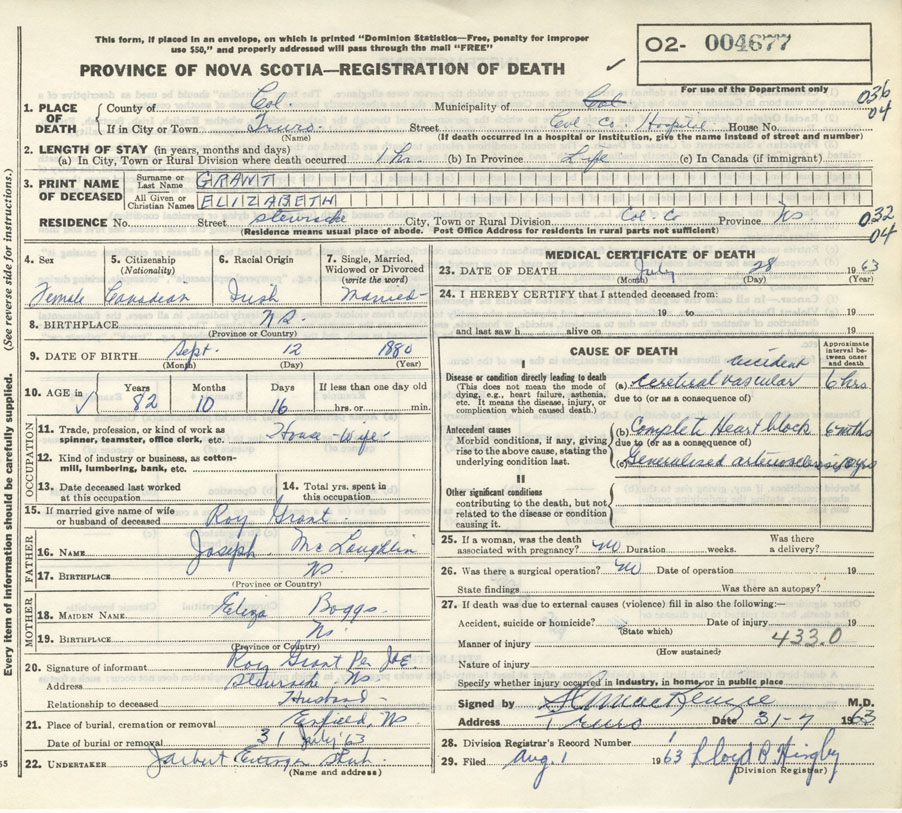 This form, if placed in an envelope, on which is printed "Dominion Statistics—Free, penalty for improper
use $50," and properly addressed will pass through the mail "FREE"
O2- 004677
PROVINCE OF NOVA SCOTIA—REGISTRATION OF DEATH ✓
For use of the Department only
036
04
1. PLACE OF DEATH
County of Col. Municipality of Col
If in City or Town Truro Street Col. Co. Hospital House No.
(Name) (If death occurred in a hospital or institution, give the name instead of street and number)
2. LENGTH OF STAY (in years, months and days)
(a) In City, Town or Rural Division where death occurred 1 hr. (b) In Province Life (c) In Canada (if immigrant)
3. PRINT NAME OF DECEASED
Surname or Last Name GRANT
All Given or Christian Names ELIZABETH
RESIDENCE No. Street Stewiacke City, Town or Rural Division Col. Co Province NS
032
04
(Residence means usual place of abode. Post Office Address for residents in rural parts not sufficient)
4. Sex 5. Citizenship (Nationality) 6. Racial Origin 7. Single, Married, Widowed or Divorced (write the word)
Female Canadian Irish Married
8. BIRTHPLACE NS.
(Province or Country)
9. DATE OF BIRTH Sept. 12 1880
(Month) (Day) (Year)
10. AGE in ✓ Years Months Days If less than one day old
82 10 16 hrs. or min.
OCCUPATION
11. Trade, profession, or kind of work as spinner, teamster, office clerk, etc. House-wife
12. Kind of industry or business, as cotton-mill, lumbering, bank, etc.
13. Date deceased last worked at this occupation 14. Total yrs. spent in this occupation
15. If married give name of wife or husband of deceased Roy Grant
FATHER
16. NAME Joseph McLaughlin
17. BIRTHPLACE NS
(Province or Country)
MOTHER
18. MAIDEN NAME Eliza Boggs
19. BIRTHPLACE NS.
(Province or Country)
20. Signature of informant Roy Grant Per
Address Stewiacke NS.
Relationship to deceased Husband
21. Place of burial, cremation or removal Enfield, NS
Date of burial or removal 31 July '63
22. UNDERTAKER
(Name and address)
MEDICAL CERTIFICATE OF DEATH
23. DATE OF DEATH July 28 1963
(Month) (Day) (Year)
24. I HEREBY CERTIFY that I attended deceased from:
19 to 19
and last saw h alive on 19
CAUSE OF DEATH
Approximate interval between onset and death
I
Disease or condition directly leading to death
(This does not mean the mode of dying, e.g., heart failure, asthenia, etc. It means the disease, injury, or complication which caused death.)
(a) Cerebral vascular accident 6 hrs
due to (or as a consequence of)
Antecedent causes
Morbid conditions, if any, giving rise to the above cause, stating the underlying condition last.
(b) Complete Heart block 6 mths
due to (or as a consequence of)
(c) Generalised arteriosclerosis 10 yrs
II
Other significant conditions
contributing to the death, but not related to the disease or condition causing it.
25. If a woman, was the death associated with pregnancy? No Duration weeks. Was there a delivery?
26. Was there a surgical operation? No Date of operation 19
State findings Was there an autopsy?
27. If death was due to external causes (violence) fill in also the following:—
Accident, suicide or homicide? Date of injury 19
(State which)
Manner of injury 433.0
(How sustained)
Nature of injury
Specify whether injury occurred in industry, in home, or in public place
Signed by MacKenzie M.D.
Address Truro Date 31-7 1963
28. Division Registrar's Record Number 1
29. Filed Aug. 1 1963 Lloyd B
(Division Registrar)
(See reverse side for instructions.)
Every item of information should be carefully supplied.
55